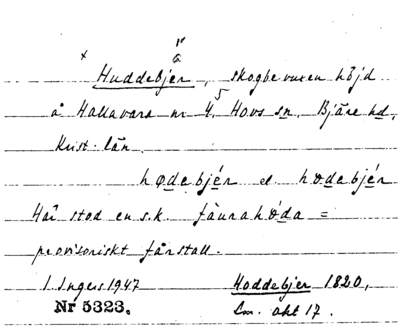 Huddebjer, skogbevuxen höjd
å Hallavara nr 4, 5 Hovs sn, Bjäre hd,
Krist. län.
hødebjér el. hødebjér
Här stod en s.k. fåurahóda =
provisoriskt fårstall.
I. Ingers 1947 Hoddebjer 1820,
Nr 5323. Lm. akt 17.